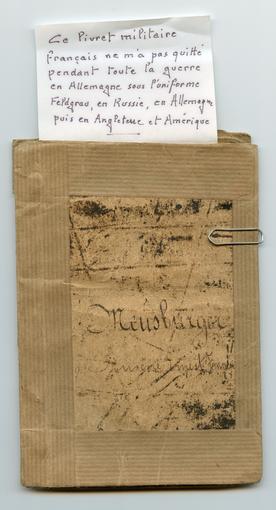 Ce livret militaire
français ne m'a pas quitté
pendant toute la guerre
en Allemagne sous l'uniforme
Feldgrau, en Russie, en Allemagne
puis en Angleterre et Amérique
Meusburger